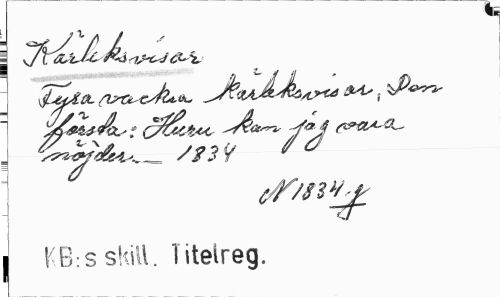 Kärleksvisor
Fyra vackra kärleksvisor, Den
första: Huru kan jag vara
nöjder. — 1834
N 1834 g
KB:s skill. Titelreg.